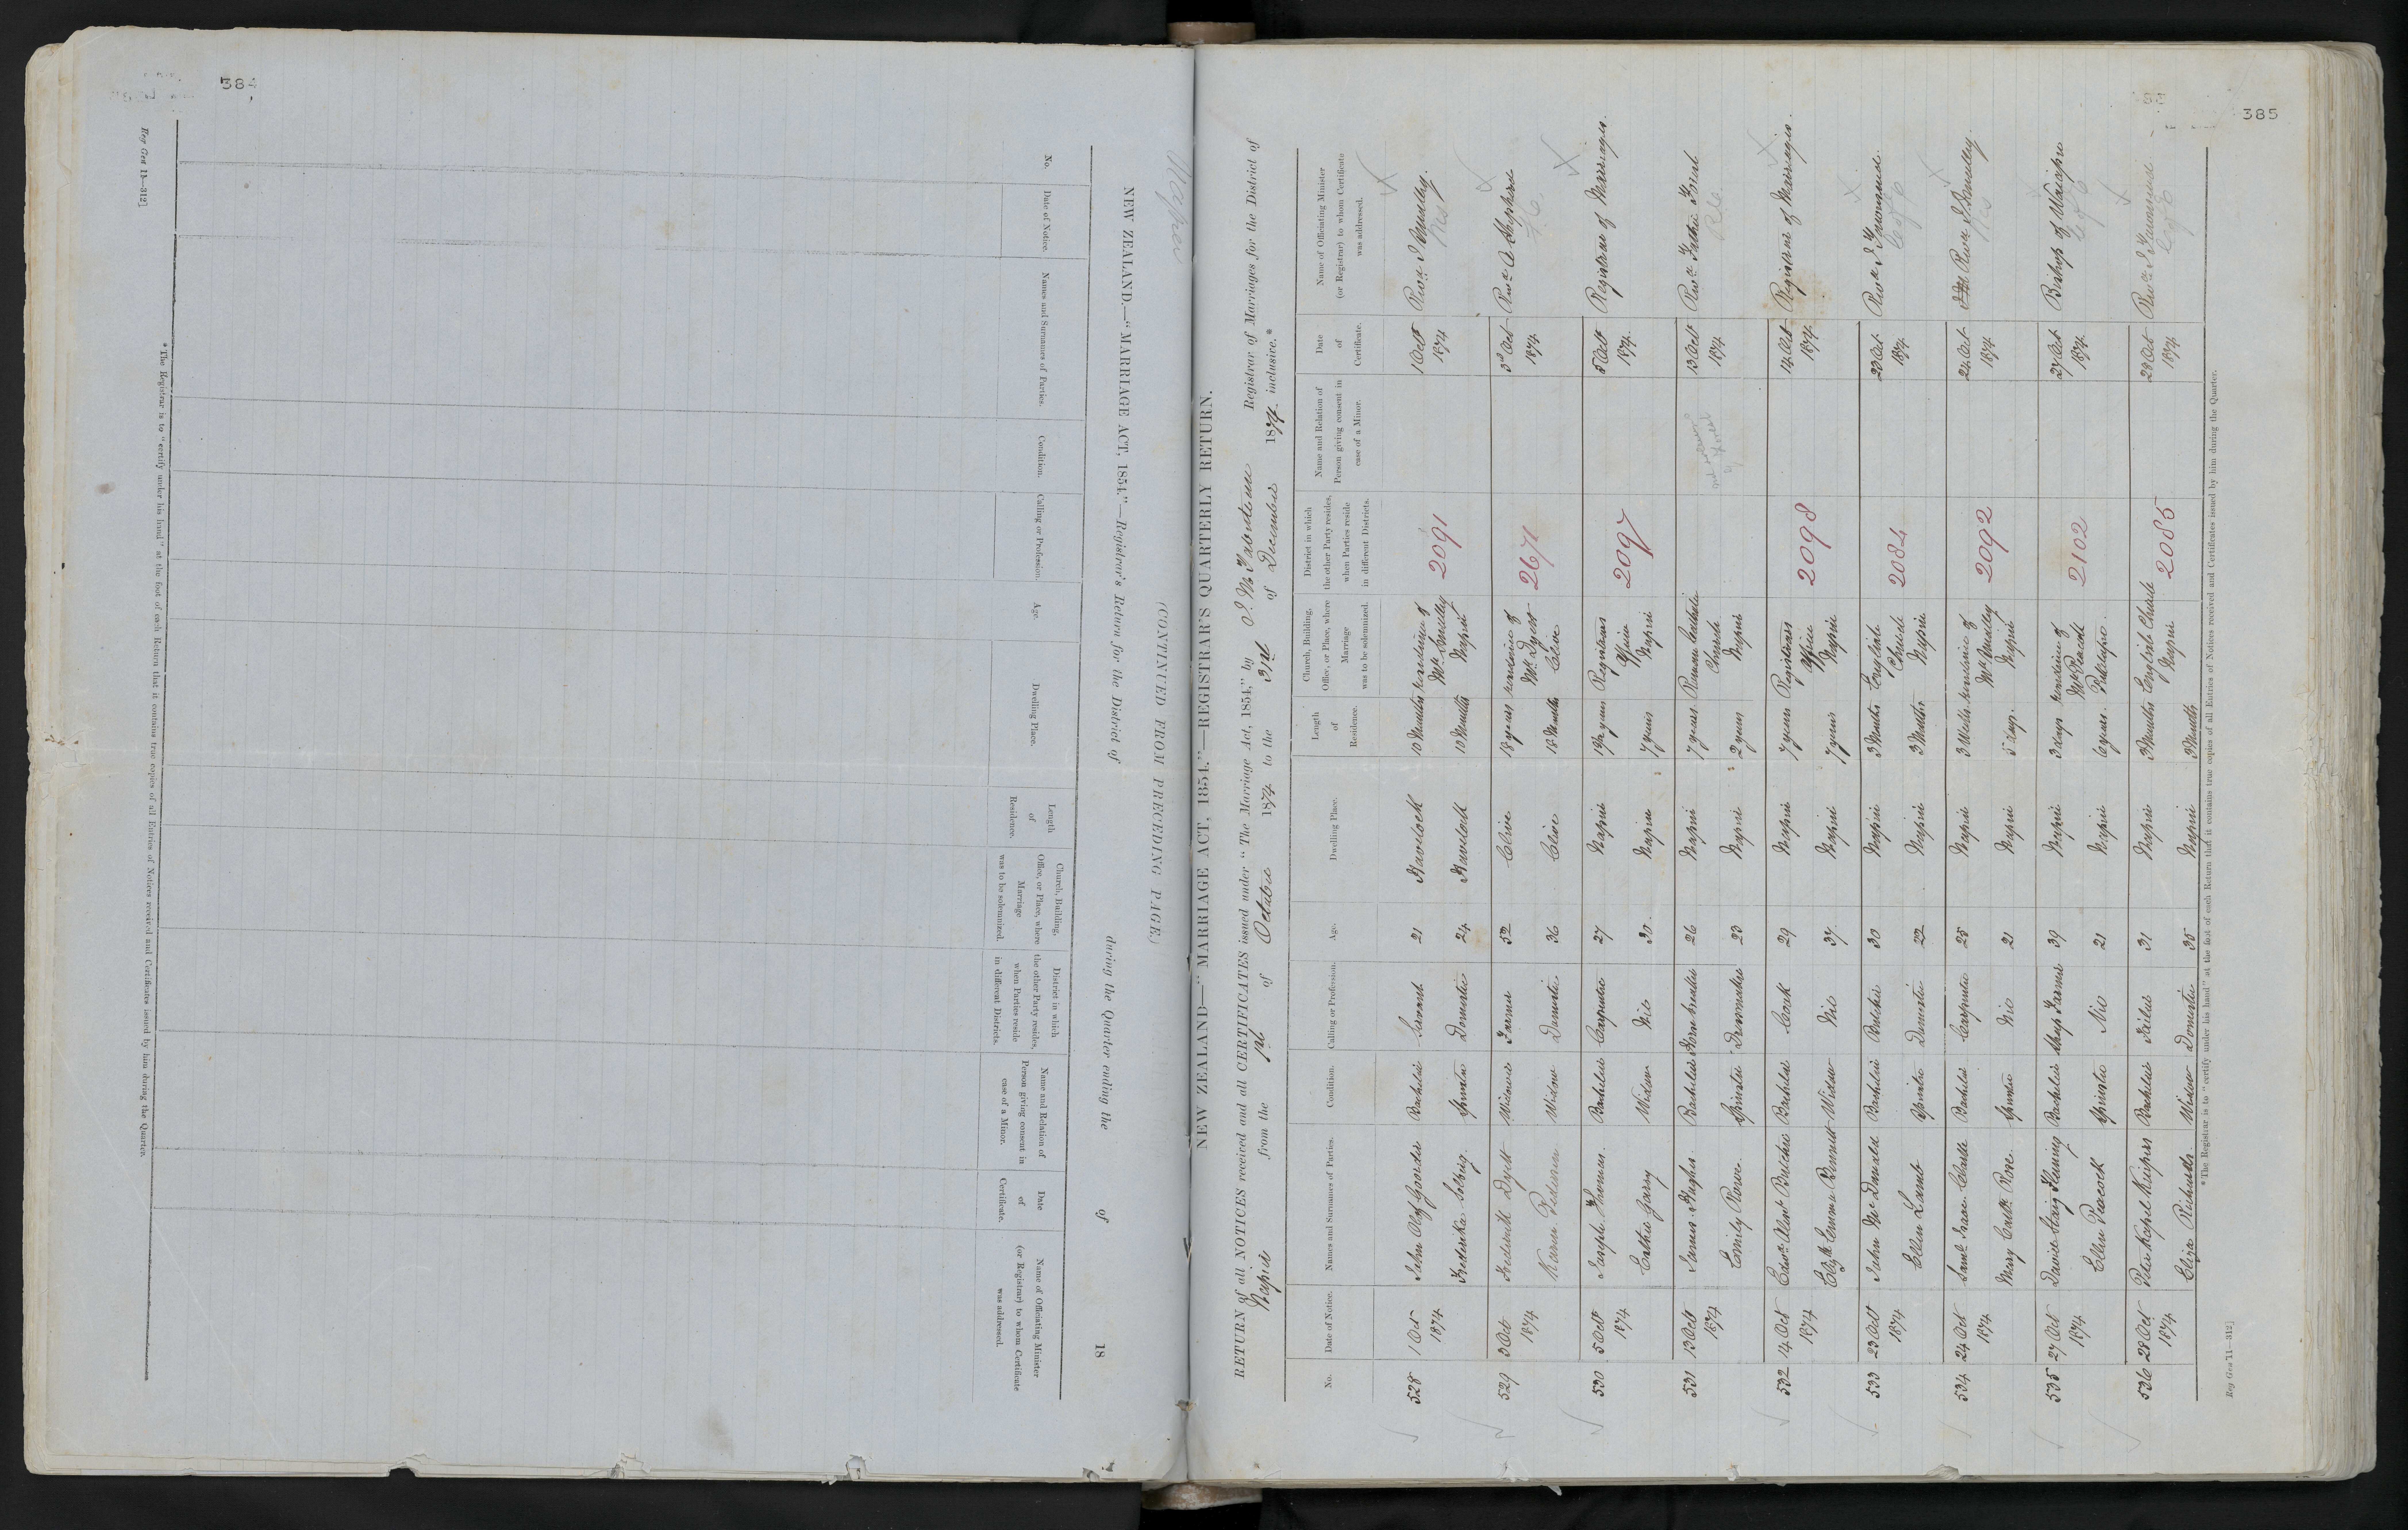 384
Reg Gen 14—312]
NEW ZEALAND.—"MARRIAGE ACT, 1854."—Registrar's Return for the District of during the Quarter ending the of 18
(CONTINUED FROM PRECEDING PAGE.)
No.
Date of Notice.
Names and Surnames of Parties.
Condition.
Calling or Profession.
Age.
Dwelling Place.
Length of Residence.
Church, Building, Office, or Place, where Marriage was to be solemnized.
District in which the other Party resides, when Parties reside in different Districts.
Name and Relation of Person giving consent in case of a Minor.
Date of Certificate.
Name of Officiating Minister (or Registrar) to whom Certificate was addressed.
* The Registrar is to "certify under his hand" at the foot of each Return that it contains true copies of all Entries of Notices received and Certificates issued by him during the Quarter.
385
Napier
NEW ZEALAND—"MARRIAGE ACT, 1854."—REGISTRAR'S QUARTERLY RETURN.
RETURN of all NOTICES received and all CERTIFICATES issued under "The Marriage Act, 1854," by Registrar of Marriages for the District of
Napier from the 1st of October 1874 to the 31st of December 1874 inclusive.*
No.
Date of Notice.
Names and Surnames of Parties.
Condition.
Calling or Profession.
Age.
Dwelling Place.
Length of Residence.
Church, Building, Office, or Place, where Marriage was to be solemnized.
District in which the other Party resides, when Parties reside in different Districts.
Name and Relation of Person giving consent in case of a Minor.
Date of Certificate.
Name of Officiating Minister (or Registrar) to whom Certificate was addressed.
528 1 Oct 1874 John Olof Bachelor Servant 21 Havelock 10 Months residence of Mr Smalley Napier 2091 1 Oct 1874 Revd J Smalley
Frederika Spinster Domestic 24 Havelock 10 Months
529 3 Oct 1874 Frederick Dyett Widower Farmer 52 Clive 18 years residence of Mr Dyett Clive 2671 3d Oct 1874 Revd A Shepherd
Karen Pedersen Widow Domestic 36 Clive 18 Months
530 5 Oct 1874 Joseph Thomas Bachelor Carpenter 27 Napier 1½ years Registrars Office Napier 2097 5 Oct 1874 Registrar of Marriages.
Cathe Garry Widow Nio 30 Napier 7 years
531 13 Oct 1874 James Hughes Bachelor 26 Napier 7 years Roman Catholic Church Napier 13 Oct 1874 Revd Father Forest
Emily Rowe Spinster Dressmaker 23 Napier 2 years
532 14 Oct 1874 Edwd Albt Butcher Bachelor Cook 29 Napier 7 years Registrars Office Napier 2098 14 Oct 1874 Registrar of Marriages.
Elizth Emma Bennett Widow Nio 37 Napier 7 years
533 23 Oct 1874 John McDonald Bachelor Butcher 30 Napier 3 Months English Church Napier 2084 23 Oct 1874 Revd J Townsend
Ellen Lamb Spinster Domestic 22 Napier 3 Months
534 24 Oct 1874 Saml Isaac Bachelor Carpenter 25 Napier 3 Weeks residence of Mr Smalley Napier 2092 24 Oct 1874 Revd J Smalley
Mary Cathe Rose Spinster Nio 21 Napier 5 days.
535 27 Oct 1874 David Fleming Bachelor Sheep Farmer 39 Napier 3 days residence of Mr Peacock Puketapu 2102 27 Oct 1874 Bishop of Waiapu
Ellen Peacock Spinster Nio 21 Napier 6 years
536 28 Oct 1874 Peter Kopel Kuipers Bachelor Tailor 31 Napier 3 Months English Church Napier 2085 28 Oct 1874 Revd J Townsend
Eliza Richards Widow Domestic 35 Napier 3 Months
* The Registrar is to "certify under his hand" at the foot of each Return that it contains true copies of all Entries of Notices received and Certificates issued by him during the Quarter.
Reg Gen 11—312]